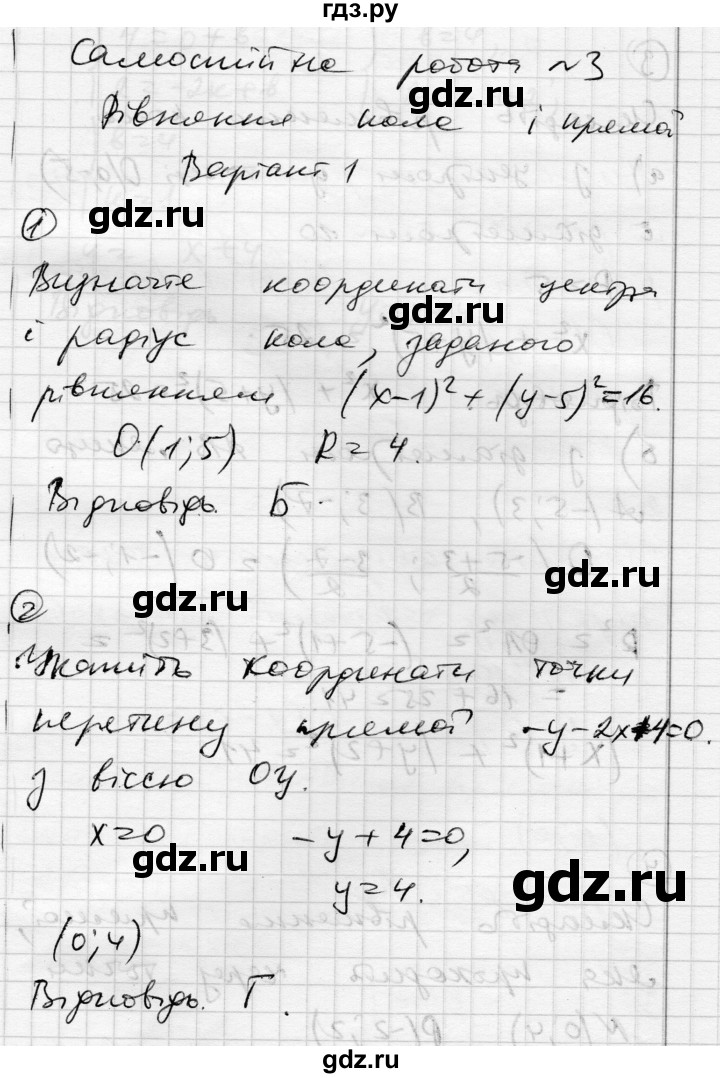 гдз.ру
Самостійна робота №3
Рівняння кола і прямої
Варіант 1
gdz.ru
①
Визначте координати центра
gdz.ru
і радіус кола, заданого
рівнянням (x-1)²+(y-5)²=16.
O(1;5) R=4.
gdz.ru
Відповідь. Б.
gdz.ru
gdz.ru
②
Укажіть координати точки
перетину прямої -y-2x+4=0.
з віссю Oy.
x=0 -y+4=0,
gdz.ru
y=4.
gdz.ru
(0;4)
Відповідь. Г.
gdz.ru
gdz.ru